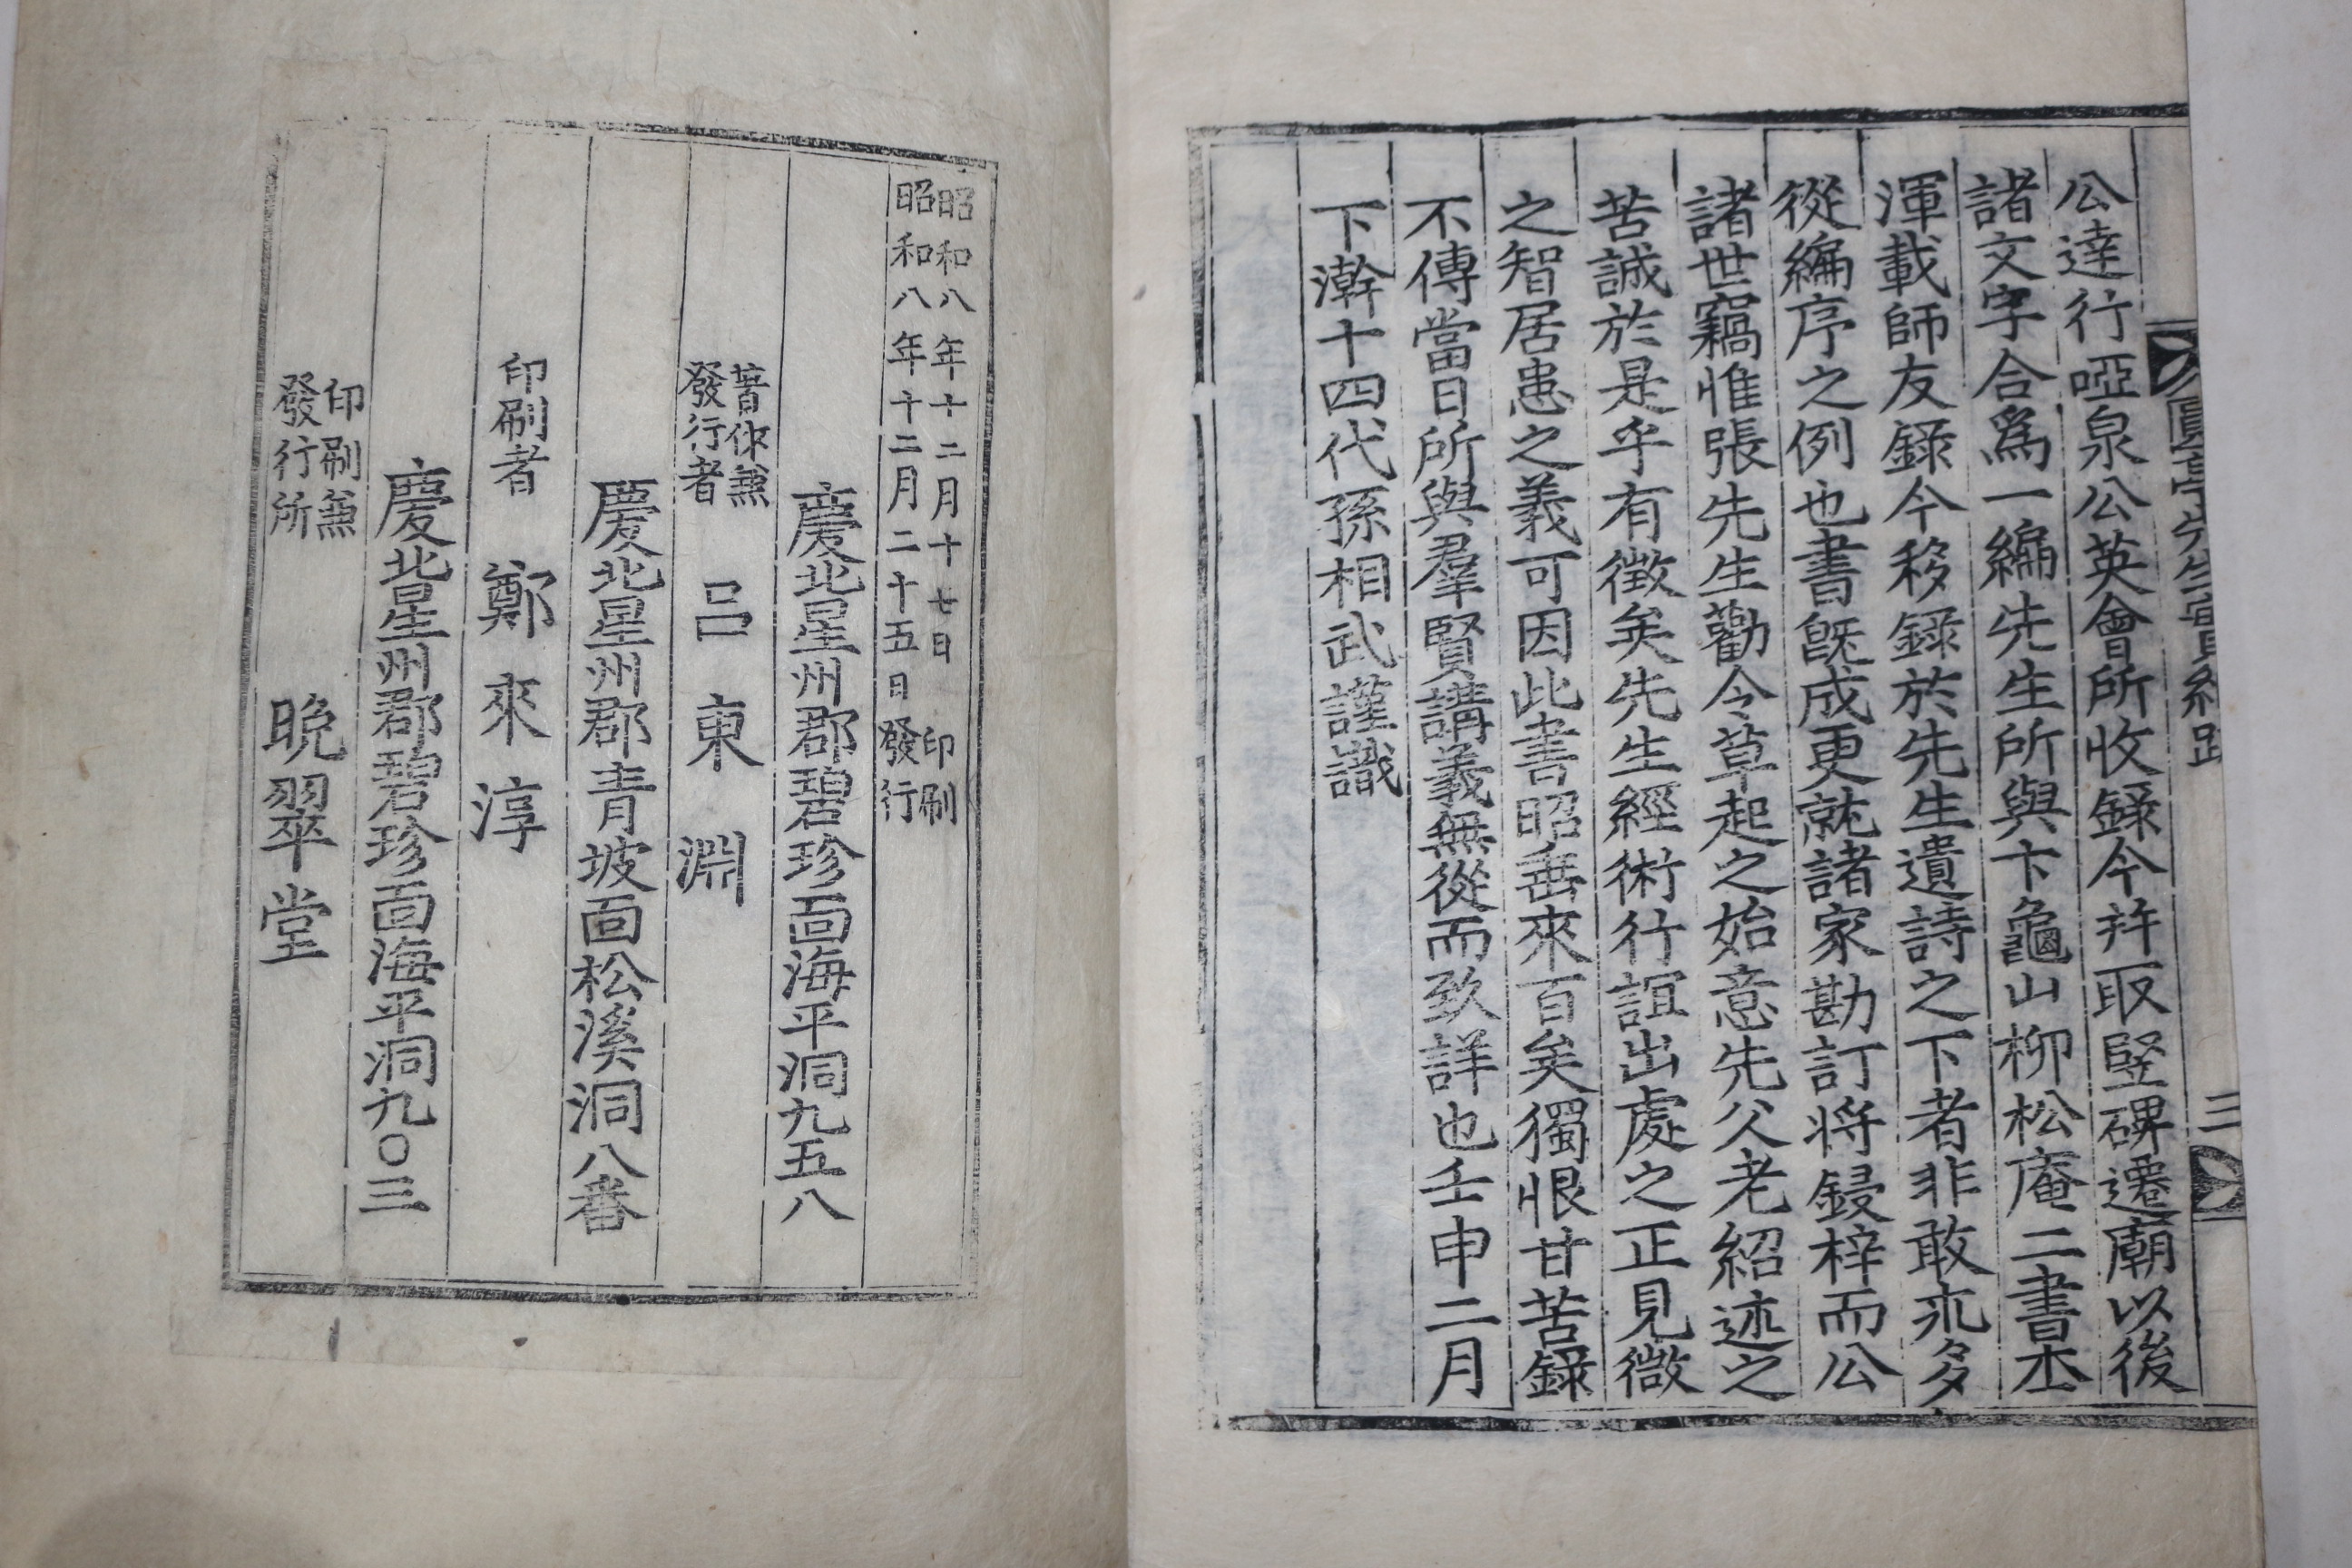 公達行啞泉公英會所收錄今幷取竪碑遷廟以後
諸文字合爲一編先生所與卞龜山柳松庵二書丕
渾載師友錄今移錄於先生遺詩之下者非敢朩多
從編序之例也書旣成更就諸家勘訂將鋟梓而公
諸世竊惟張先生勸令草起之始意先父老紹述之
苦誠於是乎有徵矣先生經術行誼出處之正見微
之智居患之義可因此書昭垂來百矣獨恨甘苦錄
不傳當日所與羣賢講義無從而致詳也壬申二月
下澣十四代孫相武謹識
圓亭先生實紀跋
三
昭和八年十二月十七日 印刷
昭和八年十二月二十五日 發行
慶北星州郡碧珍面海平洞九五八
著作兼
發行者 呂東淵
慶北星州郡青坡面松溪洞八番
印刷者 鄭來淳
慶北星州郡碧珍面海平洞九〇三
印刷兼
發行所 晩翠堂